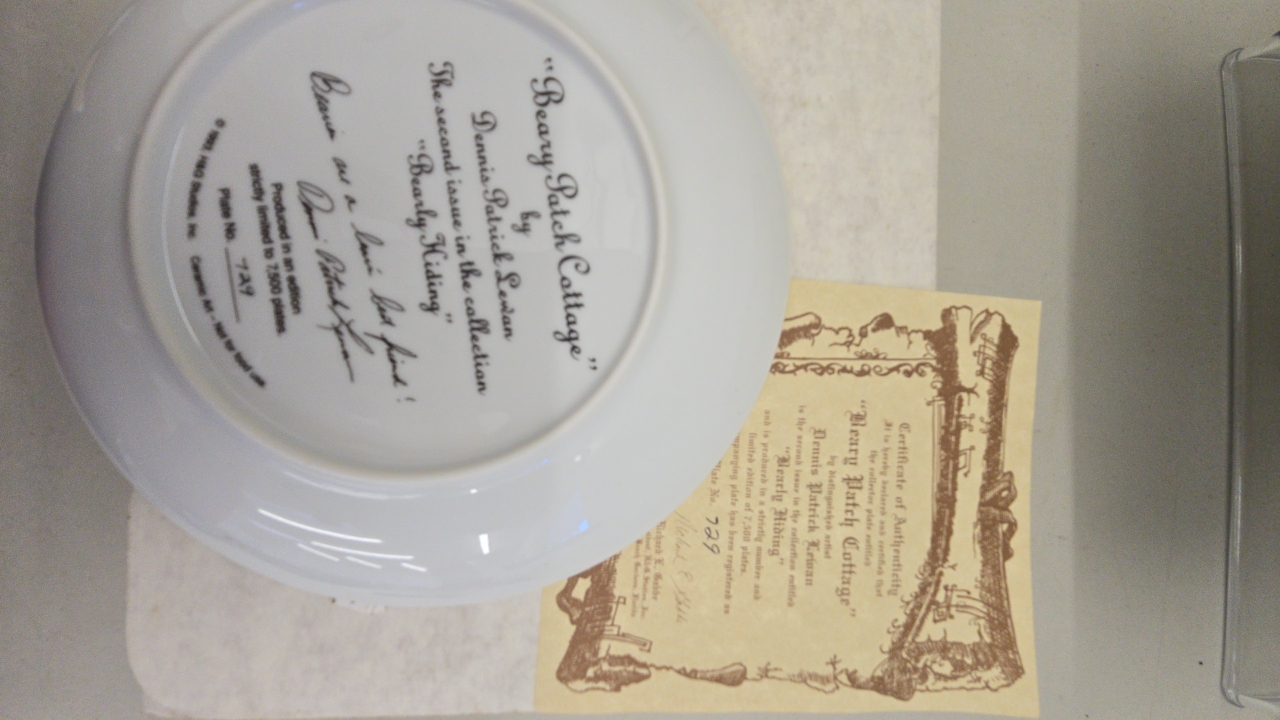 "Beary Patch Cottage"
by
Dennis Patrick Lewan
The second issue in the collection
"Bearly Hiding"
Bearin' as a best friend!
Dennis Patrick Lewan
Produced in an edition
strictly limited to 7,500 plates.
Plate No. 729
Studios, Inc. Ceramic Art - Not for food use.
Certificate of Authenticity
It is hereby declared and certified that
the collector plate entitled
"Beary Patch Cottage"
by distinguished artist
Dennis Patrick Lewan
is the second issue in the collection entitled
"Bearly Hiding"
and is produced in a strictly number and
limited edition of 7,500 plates.
plate has been registered as
Plate No. 729